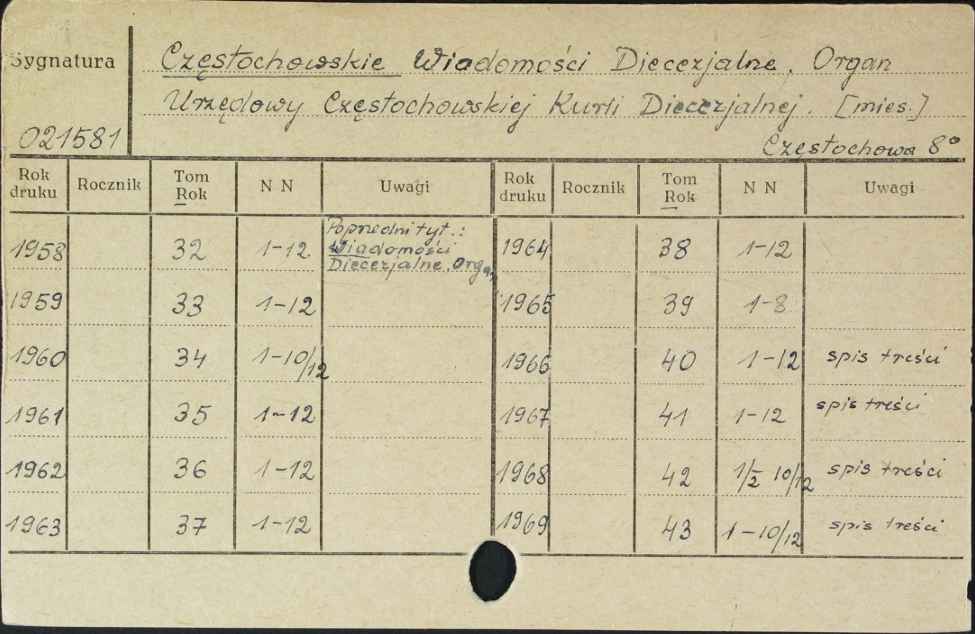 Sygnatura
021581
Częstochowskie Wiadomości Diecezjalne. Organ
Urzędowy Częstochowskiej Kurii Diecezjalnej. [mies.]
Częstochowa 8°
Rok druku Rocznik Tom Rok N N Uwagi Rok druku Rocznik Tom Rok N N Uwagi
1958 32 1-12 Poprzedni tyt.: Wiadomości Diecezjalne. Organ 1964 38 1-12
1959 33 1-12 1965 39 1-8
1960 34 1-10/12 1966 40 1-12 spis treści
1961 35 1-12 1967 41 1-12 spis treści
1962 36 1-12 1968 42 1/2 10/12 spis treści
1963 37 1-12 1969 43 1-10/12 spis treści